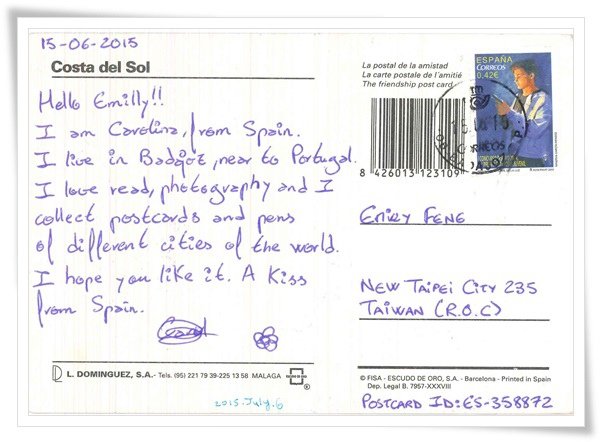 15-06-2015
Costa del Sol
Hello Emilly!!
I am Carolina, from Spain.
I live in Badajoz, near to Portugal.
I love read, photography and I
collect postcards and pens
of different cities of the world.
I hope you like it. A Kiss
from Spain.
L. DOMINGUEZ, S.A. - Tels. (95) 221 79 39-225 13 58 MALAGA
2015.July.6
La postal de la amistad
La carte postale de l'amitié
The friendship post card
8 426013 123109
ESPAÑA
CORREOS
0,42€
CORREOS
EMILY FENG
NEW TAIPEI CITY 235
TAIWAN (R.O.C)
© FISA - ESCUDO DE ORO, S.A. - Barcelona - Printed in Spain
Dep. Legal B. 7957-XXXVIII
POSTCARD ID: ES-358872